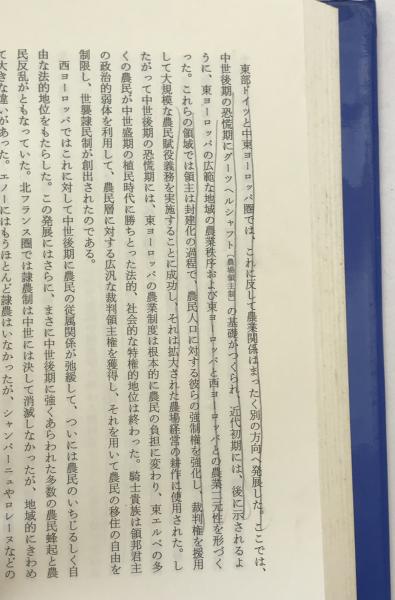 東部ドイツと中東ヨーロッパ圏では、これに反して農業関係はまったく別の方向へ発展した。ここでは、
中世後期の恐慌期にグーツヘルシャフト〔農場領主制〕の基礎がつくられ、近代初期には、後に示されるよ
うに、東ヨーロッパの広範な地域の農業秩序および東ヨーロッパと西ヨーロッパとの農業二元性を形づく
った。これらの領域では領主は封建化の過程で、農民人口に対する彼らの強制権を強化し、裁判権を援用
して大規模な農民賦役義務を実施することに成功し、それは拡大された農場経営の耕作に使用された。し
たがって中世後期の恐慌期には、東ヨーロッパの農業制度は根本的に農民の負担に変わり、東エルベの多
くの農民が中世盛期の植民時代に勝ちとった法的、社会的な特権的地位は終わった。騎士貴族は領邦君主
の政治的弱体を利用して、農民層に対する広汎な裁判領主権を獲得し、それを用いて農民の移住の自由を
制限し、世襲隷民制が創出されたのである。
西ヨーロッパではこれに対して中世後期に農民の従属関係が弛緩して、ついには農民のいちじるしく自
由な法的地位をもたらした。この発展にはさらに、まさに中世後期に強くあらわれた多数の農民蜂起と農
民反乱がともなっていた。北フランス圏では隷農制は中世には決して消滅しなかったが、地域的にきわめ
て大きな違いがあった。エノーにはもうほとんど隷農はいなかったが、シャンパーニュやロレーヌなどの